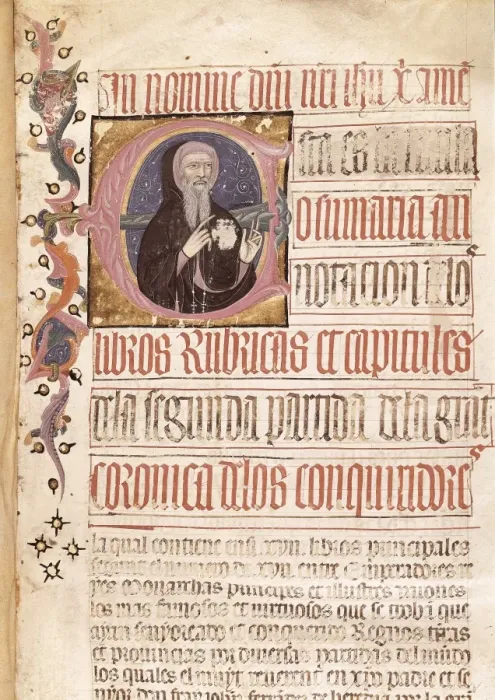 En nomine dn̄i nr̄i ihū x̄ ame
sta es la taula
o sumaria an
notacion de los
libros Rubricas et capitules
dela segunda partida dela grāt
coronica delos conquiridores
la qual contiene en si .xvij. libros principales
segunt el numero de .xvij. entre Emperadores re
yes monarchas principes et illustres varones
los mas famosos et virtuosos que se troba que
ayan senyoreado et conquerido Regnos tr̄as
et prouincias por diuersas partidas del mundo
los quales el muyt reuerent en xp̄o padre et se
nyor don fray johan ferrandez de heredia por la gr̄a